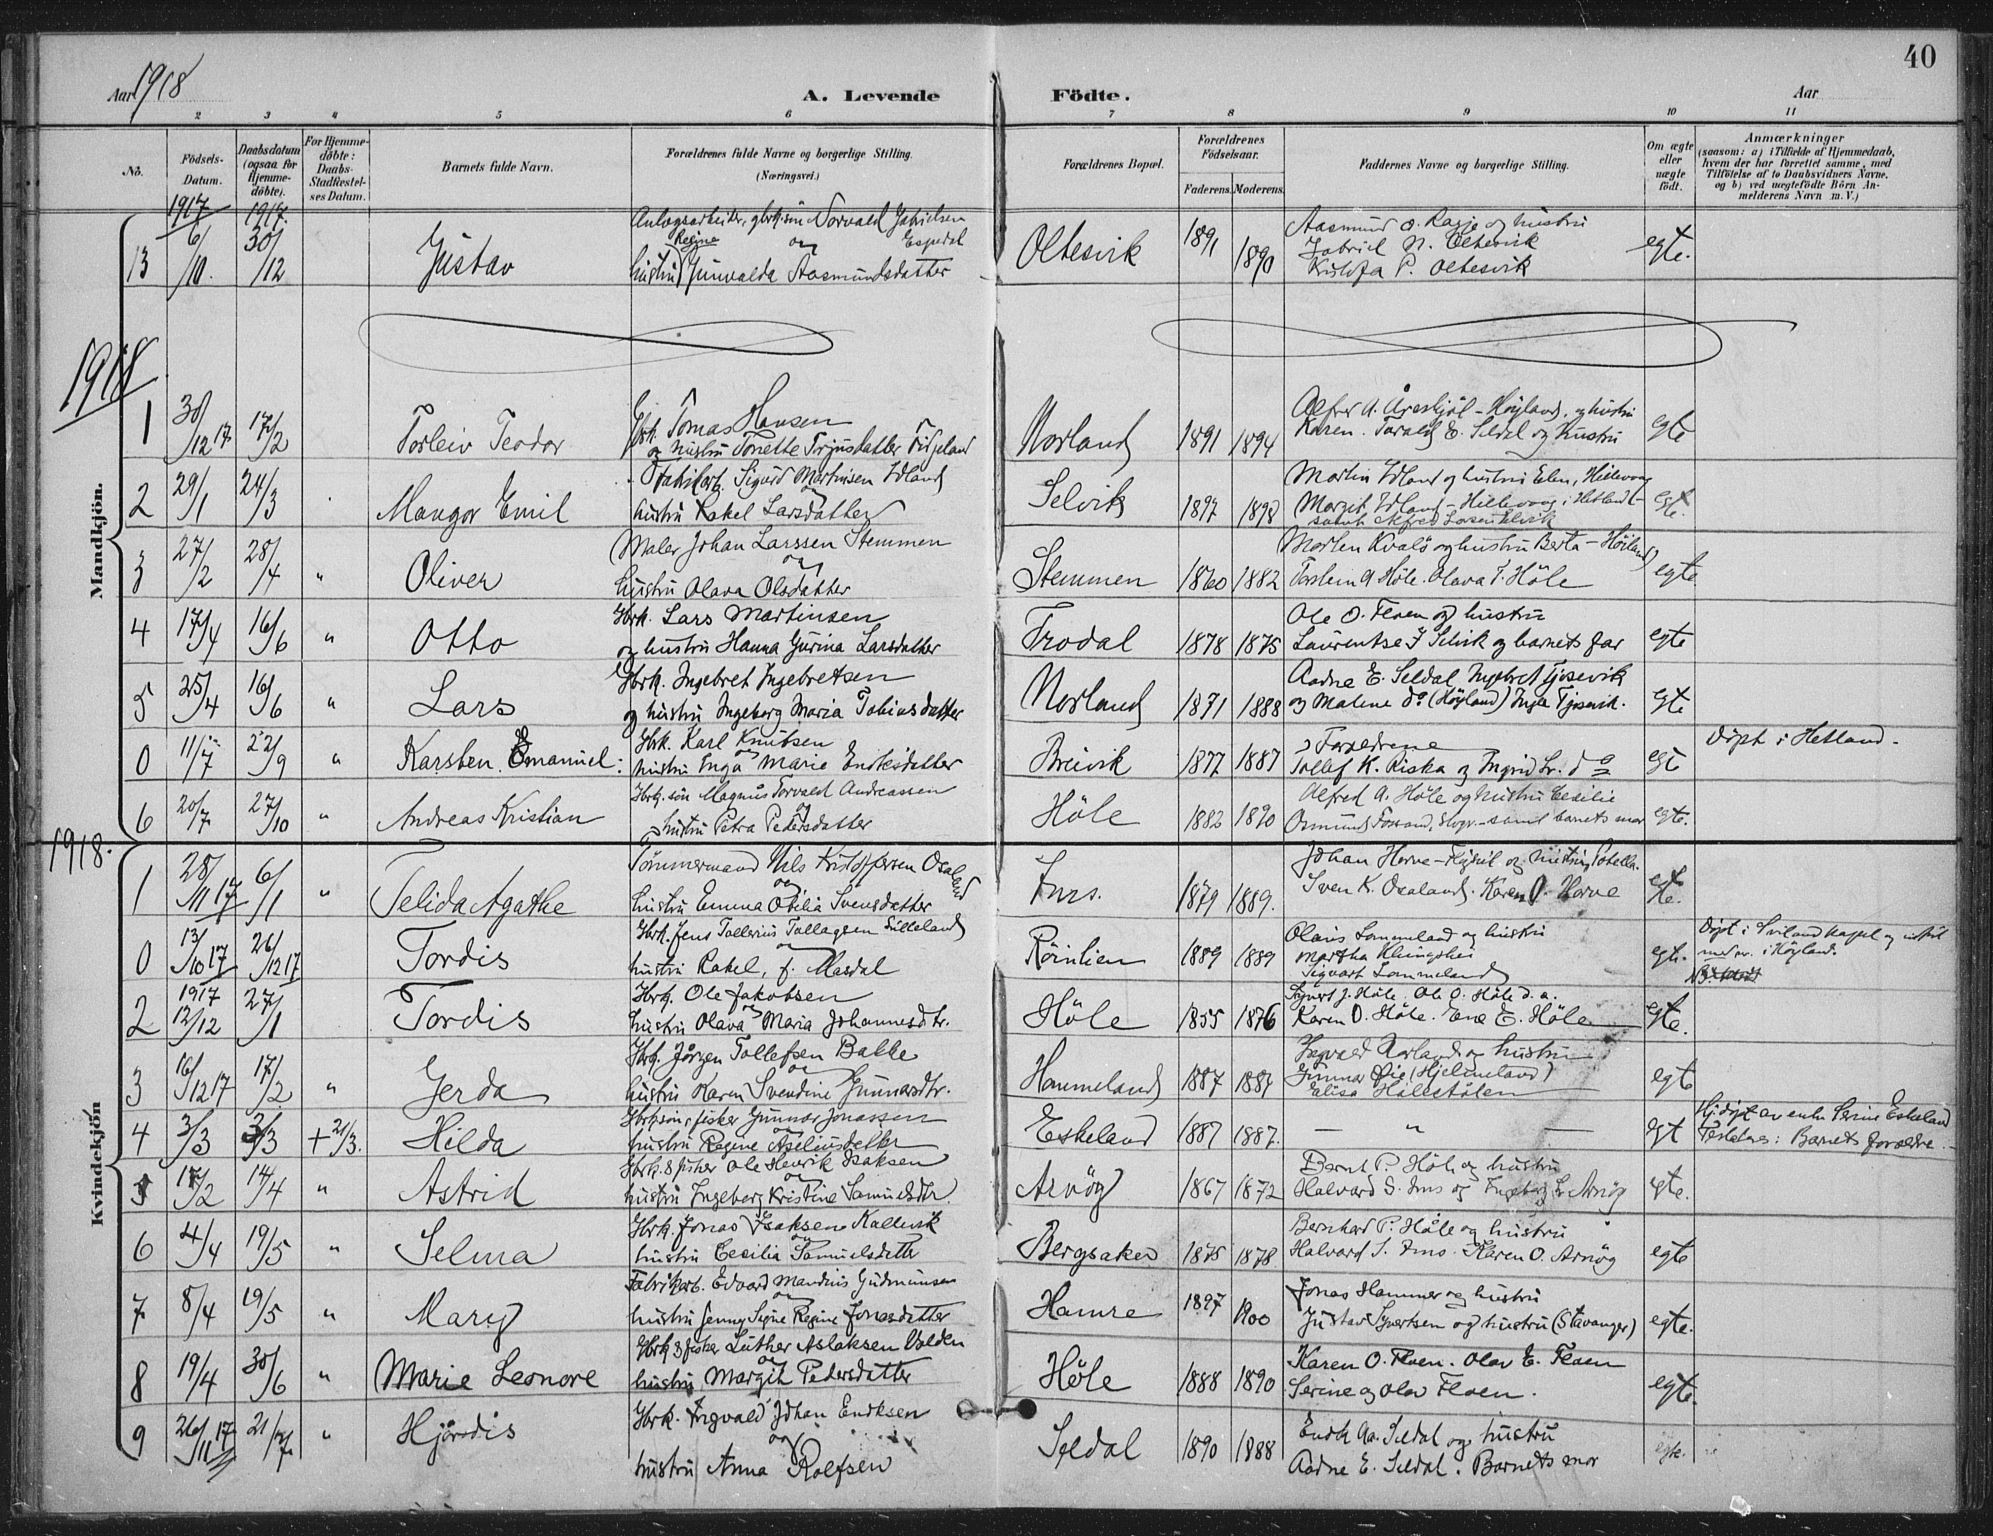 40
Aar 1918
A. Levende Födte.
Aar
2 3 4 5 6 7 8 9 10 11
No.
Födsels-Datum.
Daabsdatum (ogsaa for Hjemme-döbte).
For Hjemme-döbte: Daabs-Stadfæstel-ses Datum.
Barnets fulde Navn.
Forældrenes fulde Navne og borgerlige Stilling. (Næringsvei.)
Forældrenes Bopæl.
Forældrenes Födselsaar.
Faderens. Moderens.
Faddernes Navne og borgerlige Stilling.
Om ægte eller uægte födt.
Anmærkninger
(saasom: a) i Tilfælde af Hjemmedaab,
hvem der har forrettet samme, med
Tilföielse af to Daabsvidners Navne,
og b) ved uægtefödte Börn An-
melderens Navn m. V.)
1917 1917.
13 6/10. 30/12 Gustav
Anlægsarbeider, gbrk.sön Norvald Gabrielsen Espedal
og
hustru Regine Gunvalda Aasmundsdatter
Oltesvik 1891 1890
Aasmund O. Ragje og hustru
Gabriel N. Oltesvik
P. Oltesvik
egte.
1918
Mandkjön.
1 30/12 17 17/2 Torleiv Teodor
Gbrk. Tomas Hansen
og hustru Tonette Terjusdatter
Norland 1891 1894
Karen. Tarald E. Seldal og hustru
egte
2 29/1 24/3 Mangor Emil
Fabrikarb. Sigurd Martinsen Idland
og
hustru Rakel Larsdatter
Selvik 1897 1898
Martin Idland og hustru Elen, Hillevaag
Margit Idland - Hillevaag i Hetland -
samt Alfred Larsen Selvik
egte.
3 27/2 28/4 " Oliver
Maler Johan Larssen Stemmen
og
hustru Olava Olsdatter
Stemmen 1860 1882
Morten Kvalö og hustru Berta - Höiland)
Torstein A Höle. Olava T. Höle
egte
4 17/4 16/6 " Otto
Gbrk. Lars Martinsen
og hustru Hanna Gurina Larsdatter
Frodal 1878 1875
Ole O. Floen og hustru
Laurentse I Selvik og barnets far
egte
5 25/4 16/6 " Lars
Gbrk. Ingebret Ingebretsen
og hustru Ingeborg Maria Tobiasdatter
Norland 1871 1888
Aadne E. Seldal Ingebret Tjosevik
og Malene do (Höyland) Inga Tjosevik.
egte
0 11/7 22/9 " Karsten Emanuel
Gbrk. Karl Knutsen
og
hustru Inga Marie Endresdatter
Breivik 1877 1887
Foreldrene
Tollef K. Riska og Ingrid Lr. do
egte
döpt i Hetland.
6 20/7 27/10 " Andreas Kristian
Gbrk. sön Magnus Torvald Andreassen
og
hustru Petra Pedersdatter
Höle 1882 1890
Alfred A. Höle og hustru Cecilie
Osmund Fossand, - samt barnets mor
egte.
1918.
Kvindekjön
1 28/11 17 6/1 " Telida Agathe
Tömmermand Nils Kristoffersen Osaland
og
hustru Emma Otilia Svensdatter
Ims. 1879 1889.
Johan Horve - og hustru
Sven K. Osaland. Karen O. Horve
egte.
0 13/10 17 26/12 17 Tordis
Gbrk. Jens Tollerius Tollagsen Lilleland
og
hustru Rakel, f. Masdal
Rönlien 1889 1889
Olaus Sommeland og hustru
Martha
Sigvart Sommeland
egte.
Döpt i Sviland kapel og
i Höyland.
1917
2 12/12 27/1 Tordis
Gbrk. Ole Jakobsen
og
hustru Olava Maria Johannesdtr.
Höle 1855 1876
Sigurd J. Höle. Ole O. Höle d. a.
Karen O. Höle. Ene E. Höle
egte.
3 16/12 17 17/2 " Gerda
Gbrk. Jörgen Tollefsen Bakke
og
hustru Karen Svendine Gunnarsdtr.
Hommeland 1887 1887
Ingvald Norland og hustru
Gunnar Öie (Hjelmeland)
Elisa Hollestölen
egte
4 3/3 3/3 + 21/3. Hilda
Gbrksön, fisker Gunnar Jonassen
og
hustru Regine Aseliusdatter
Eskeland 1887 1887.
— " —
egt
Hj.döpt av enke Serine Eskeland
Testatores: Barnets forældre.
5 17/2 14/4 " Astrid
Gbrk. & fisker Ole Henrik Isaksen
og
hustru Ingeborg Kristine Samuelsdtr.
Arnög 1867 1872
Bernt P. Höle og hustru
Halvard S. Ims og Ingeborg Lr. Arnög
egte.
6 4/4 19/5 " Selma
Gbrk. Jonas Isaksen Kallevik
og
hustru Cecilia Samuelsdatter
Bergsaker 1875 1878
Bernhard P. Höle og hustru
Halvard S. Ims. Karen O. Arnög
egte
7 8/4 19/5 " Mary
Fabrikarb. Edvard Mandius Gudmunsen
og
hustru Jenny Signe Regine Jonasdatter
Hamre 1897 1900
Jonas Hammer og hustru
Gustav Syvertsen og hustru (Stavanger)
egte.
8 19/4 30/6 " Marie Leonore
Gbrk & fisker Luther Aslaksen Valden
og
hustru Margit Pedersdatter
Höle 1888 1890
Karen O. Floen. Olav E. Floen
Serine og Olav Floen.
egte.
9 26/11 17 21/7 " Hjördis
Gbrk. Ingvald Johan Endresen
og
hustru Anna Rolfsen
Seldal 1890 1888
Endr. Aa. Seldal og hustru
Aadne E. Seldal. Barnets mor
egte.